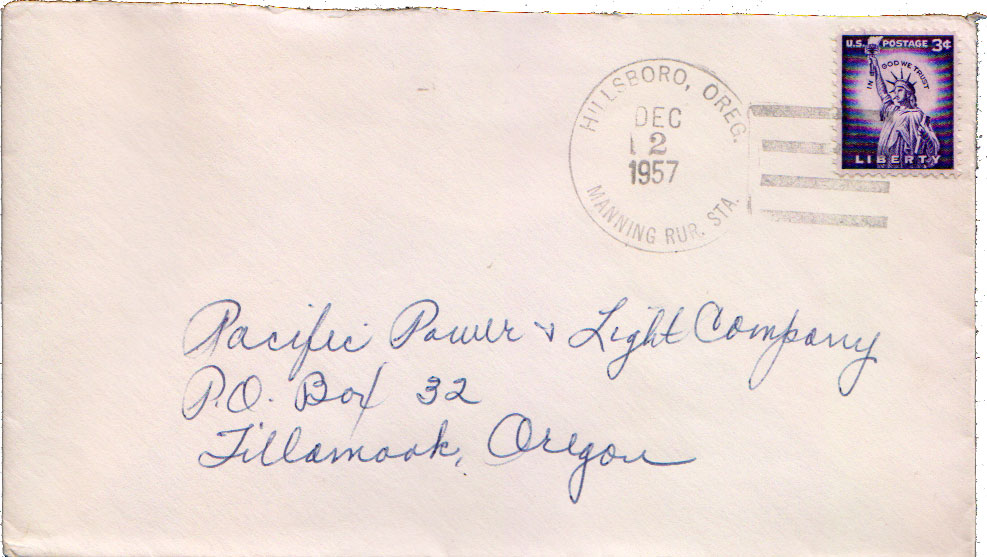 U.S. POSTAGE 3¢
IN GOD WE TRUST
LIBERTY
HILLSBORO, OREG.
DEC
2
1957
MANNING RUR. STA.
Pacific Power & Light Company
P.O. Box 32
Tillamook, Oregon